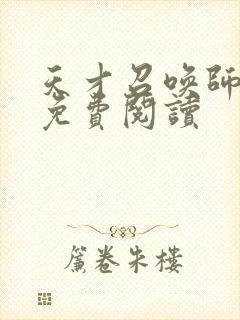 天才召喚師
免費閱讀
簾卷朱樓